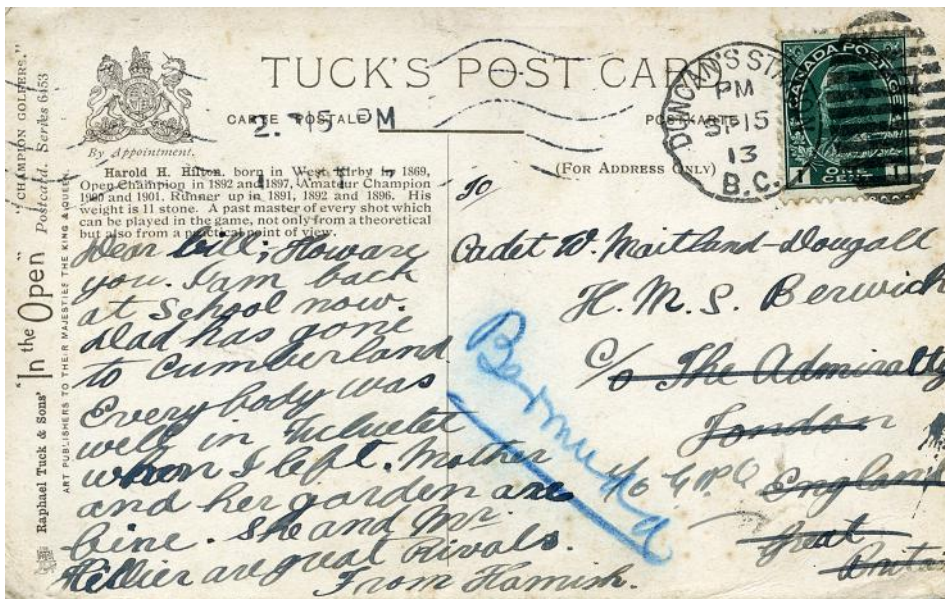 TUCK'S POST CARD
CARTE POSTALE
POSTKARTE
By Appointment.
(FOR ADDRESS ONLY)
Harold H. Hilton, born in West Kirby in 1869,
Open Champion in 1892 and 1897, Amateur Champion
1900 and 1901. Runner up in 1891, 1892 and 1896. His
weight is 11 stone. A past master of every shot which
can be played in the game, not only from a theoretical
but also from a practical point of view.
Dear bill; How are
you. I am back
at School now.
Dad has gone
to Cumberland
Everybody was
well in
when I left. Mother
and her garden are
fine. She and Mr.
Hillier are great Rivals.
From Hamish.
To
Cadet W. Maitland-Dougall
H.M.S. Berwick
c/o The Admiralty
London
c/o G.P.O England
Great
Brita
Bermuda
2. 15 PM
DUNCAN'S STA
PM
SP 15
13
B.C.
CANADA POSTAGE
1 CENTS 1
Raphael Tuck & Sons' "In the Open" Postcard. Series 6453 "CHAMPION GOLFERS."
ART PUBLISHERS TO THEIR MAJESTIES THE KING & QUEEN.